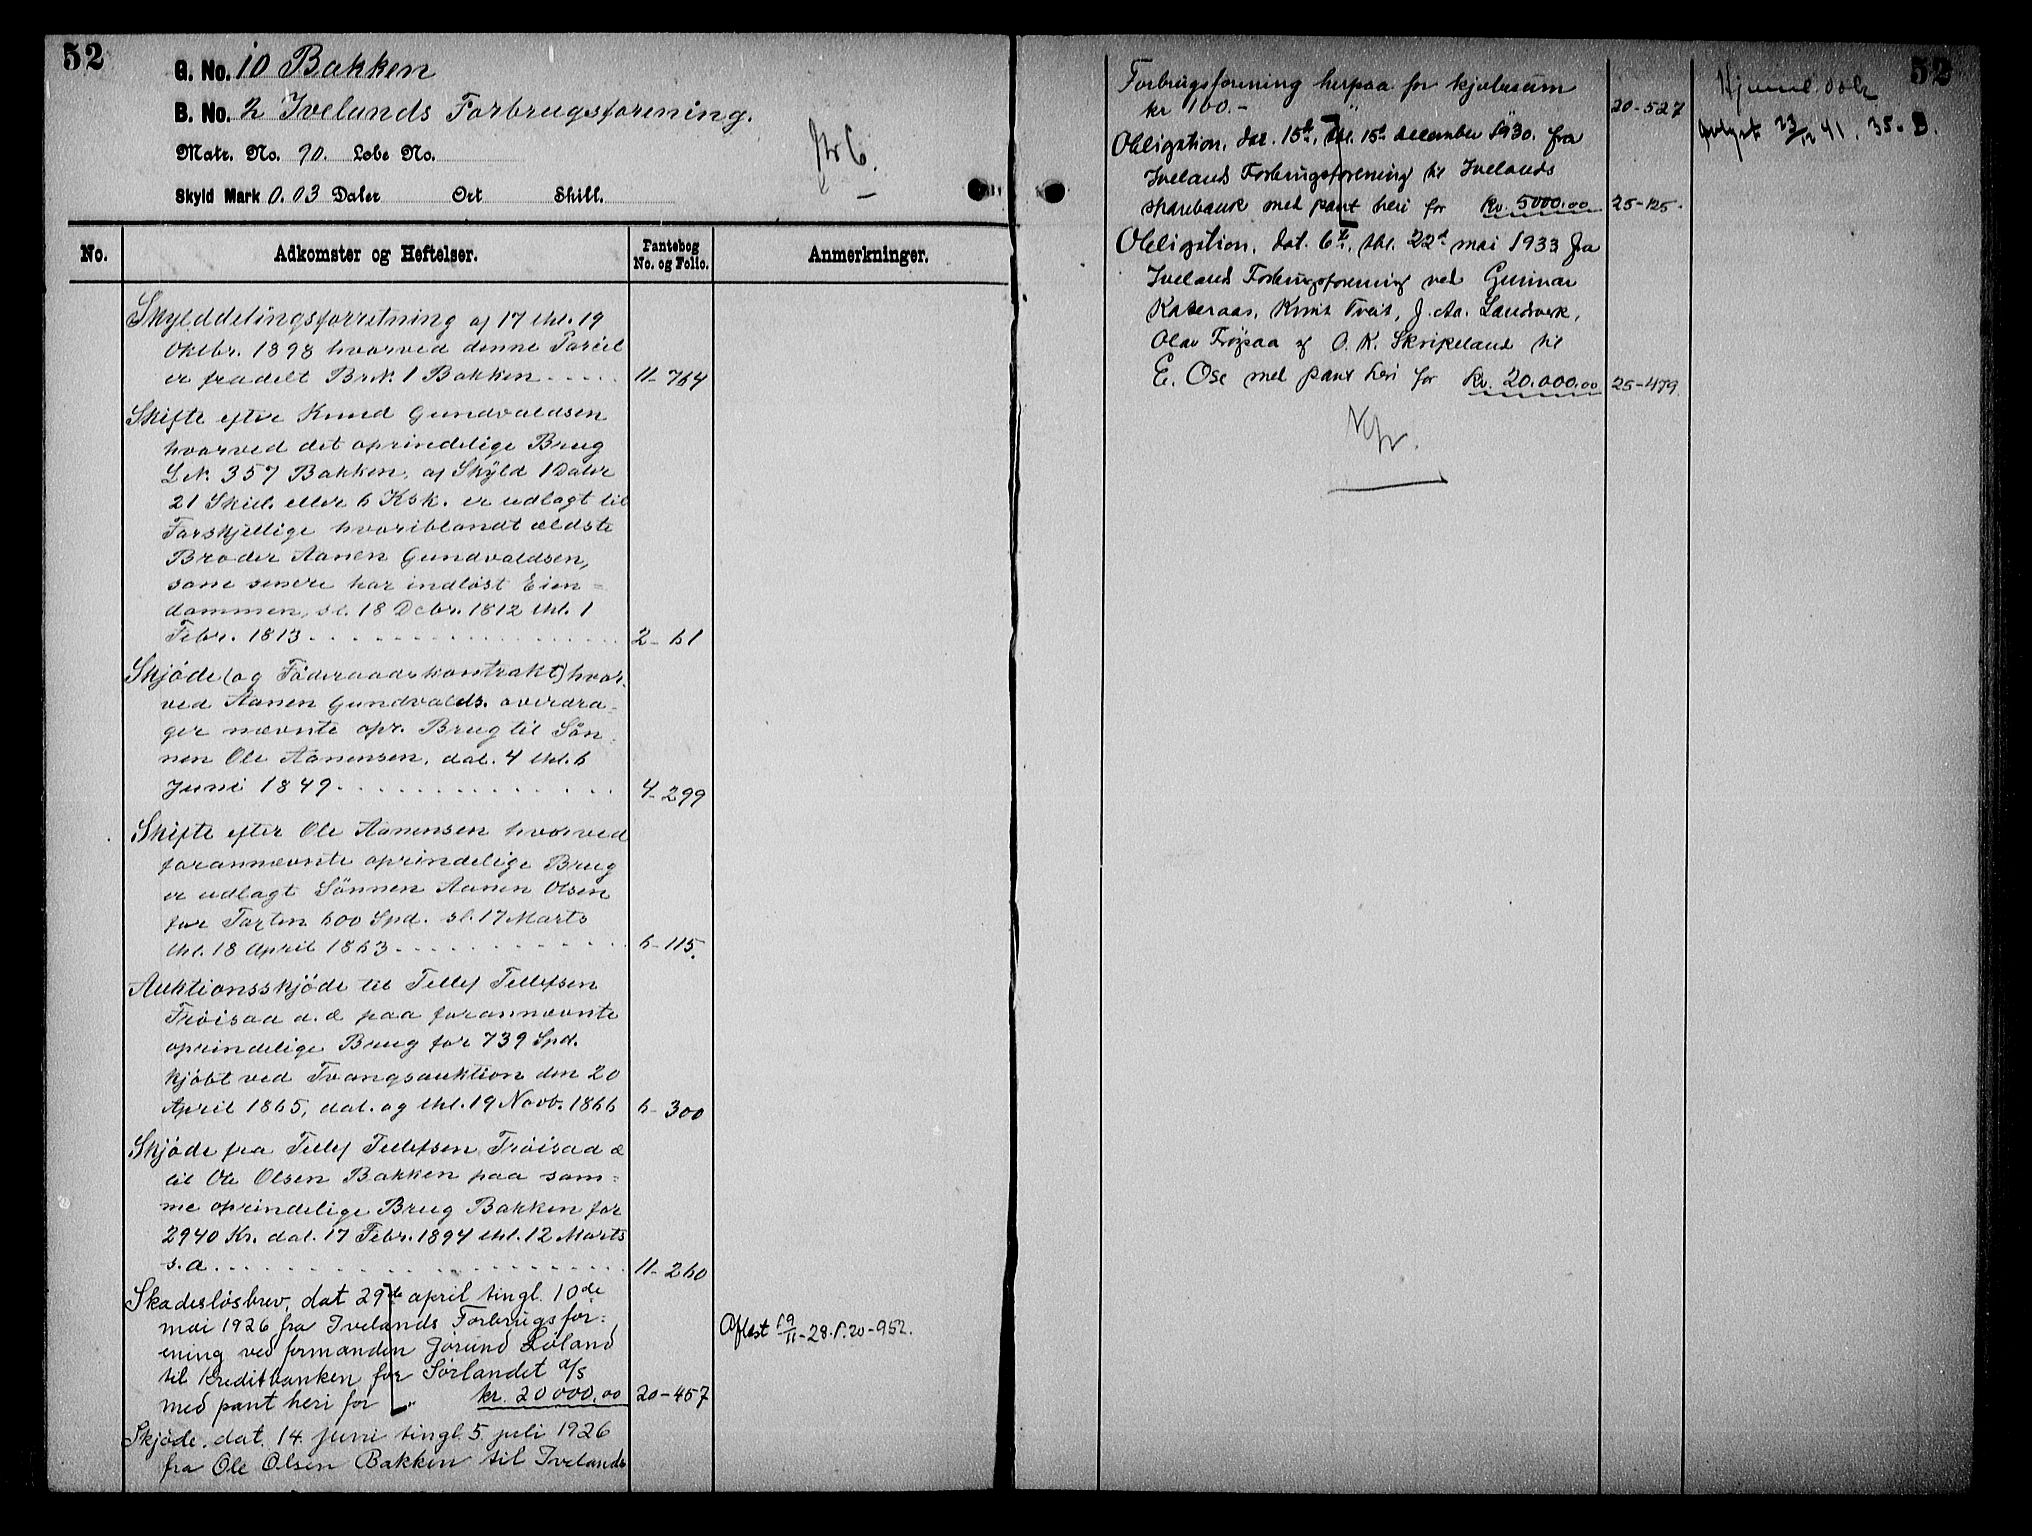 52
G. No. 10 Bakken
B. No. 2 Ivelands Forbrugsforening.
Matr. No. 90. Løbe No.
Skyld Mark 0.03 Daler Ort Skill.
No.
Adkomster og Heftelser.
Pantebog
No. og Folio.
Anmerkninger.
Skylddelingsforretning af 17 thl. 19
Oktbr. 1898 hvorved denne Parcel
er fradelt Brk. 1 Bakken . . . . . 11-764
Skifte efter Knud Gundvaldsen
hvorved det oprindelige Brug
L.N. 357 Bakken, af Skyld 1 Daler
21 Skill. eller 6 Ksk. er udlagt til
Forskjellige hvoriblandt ældste
Broder Aanen Gundvaldsen,
som senere har indløst Eien=
dommen, sl. 18 Debr. 1812 thl. 1
Febr. 1813 . . . . . 2-61
Skjøde (og Føderaadskontrakt) hvor-
ved Aanen Gundvalds. overdra=
ger nævnte opr. Brug til Søn=
nen Ole Aanensen, dat. 4 thl. 6
Juni 1849 . . . . . 4-299
Skifte efter Ole Aanensen hvorved
forannævnte oprindelige Brug
er udlagt Sønnen Aanen Olsen
for Taxten 600 Spd. sl. 17 Marts
thl. 18 April 1863 . . . . . 6-115.
Auktionsskjøde til Tellef Tellefsen
Frøisaa a. d paa forannævnte
oprindelige Brug for 739 Spd.
kjøbt ved Tvangsauktion den 20
April 1865, dat. og thl. 19 Novb. 1866 6-300
Skjøde fra Tellef Tellefsen Frøisaa d
til Ole Olsen Bakken paa sam=
me oprindelige Brug Bakken for
2940 Kr. dat. 17 Febr. 1894 thl. 12 Marts
s.a. . . . . 11-260
Skadesløsbrev, dat 29de april tingl. 10de
mai 1926 fra Ivelands Forbrugsfor=
ening ved formanden Jørund Løland
til Kreditbanken for Sørlandet a/s
med pant heri for " kr. 20000.00 20-457
Aflæst 19/11-28. P. 20-952.
Skjøde. dat. 14. juni tingl. 5. juli 1926
fra Ole Olsen Bakken til Ivelands
52
Forbrugsforening herpaa for kjøbesum
kr 100.- " 20-527
Obligation, dat. 15d, thl. 15d december 1930. fra
Iveland Forbrugsforening til Ivelands
sparebank med pant heri for kr. 5000.00 25-125.
Obligation, dat. 6t, thl. 22d mai 1933 fra
Iveland Forbrugsforening ved Gunnar
Kateraas, Knut Tveit, J. Aa. Landverk,
Olav Frøysaa og O. K. Skripeland til
E. Ose med pant heri for kr. 20.000.00 25-479.
avlyst 23/12 41. 35. B.